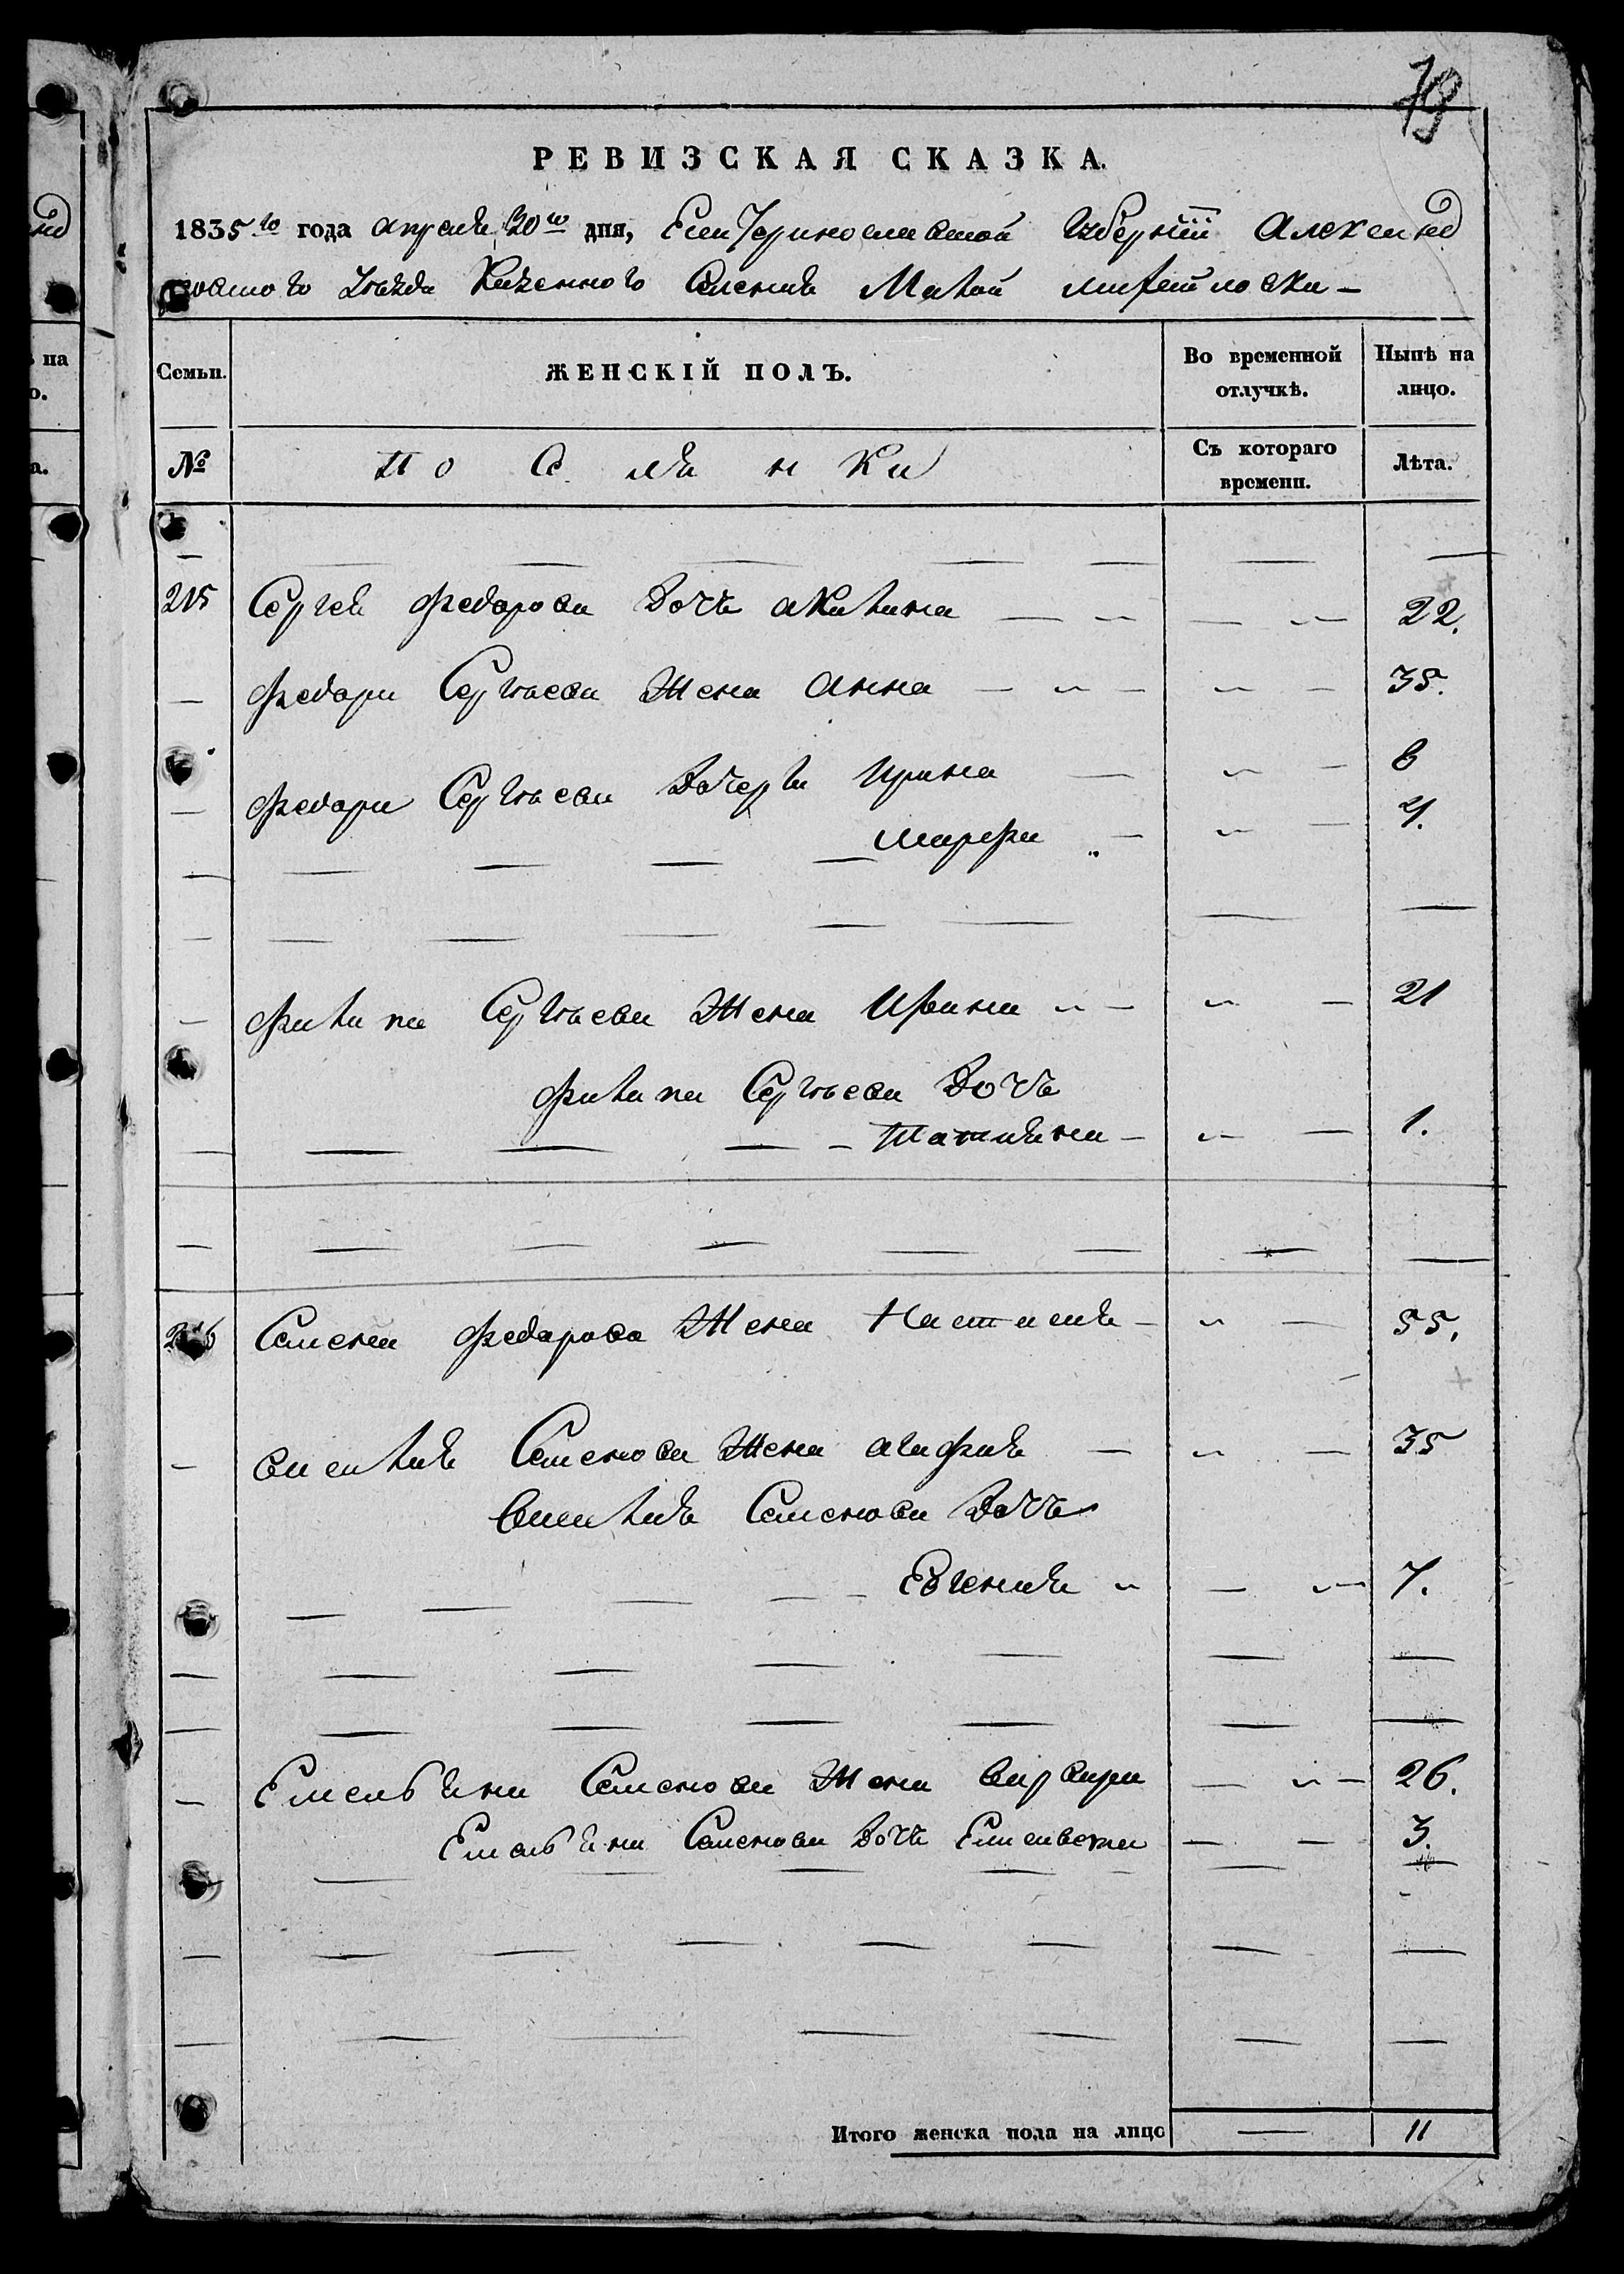 79
РЕВИЗСКАЯ СКАЗКА.
1835го года апреля 30го дня, Екатеринославской Губернiи Александ
ровского Уѣзда Казенного Селения Малой Михайловки —
Семьи.
ЖЕНСКIЙ ПОЛЪ.
Во временной отлучкѣ.
Нынѣ на лицо.
№
Поселянки
Съ котораго времени.
Лѣта.
215 Сергея Федорова Дочь Акилина 22.
Федора Сергѣева Жена Анна 35.
Федора Сергѣева Дочери Ирина 8
Марфа 4.
Филипа Сергѣева Жена Ирина 21
Филипа Сергѣева Дочь
Татияна 1.
216 Семена Федорова Жена Настасия 55.
Василия Семенова Жена Агафия 35
Василия Семенова Дочь
Евгения 7.
Емельяна Семенова Жена Варвара 26.
Емельяна Семенова Дочь Елисавета 3.
Итого женска пола на лицо — 11